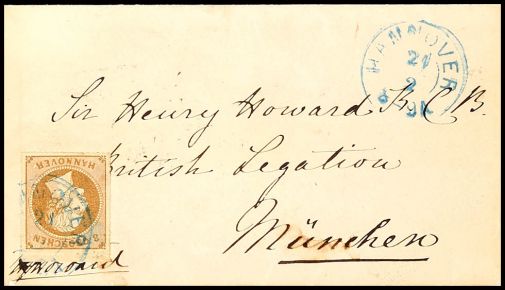 HANNOVER
21
2
Sir Henry Howard K. C. B.
British Legation
München
HANNOVER
GROSCHEN
21